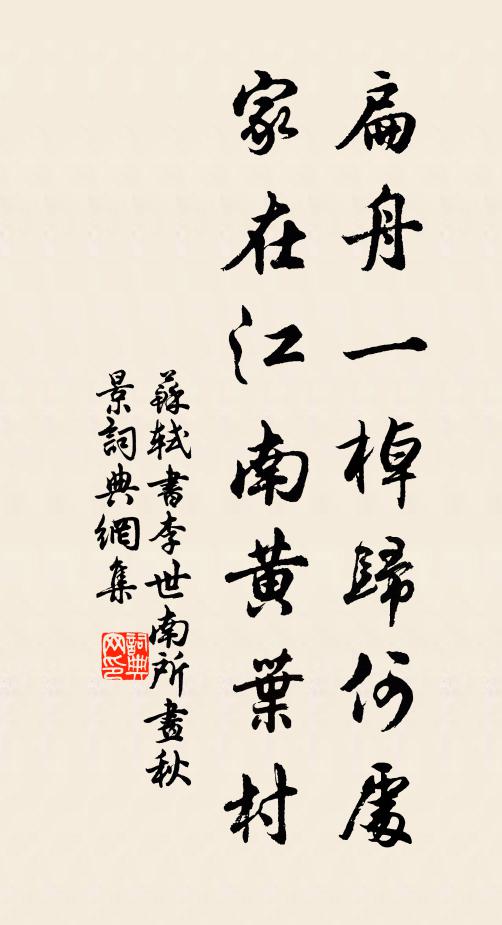 扁舟一棹歸何處
家在江南黃葉村
蘇軾書李世南所畫秋
景詞典網集
詞典
網印